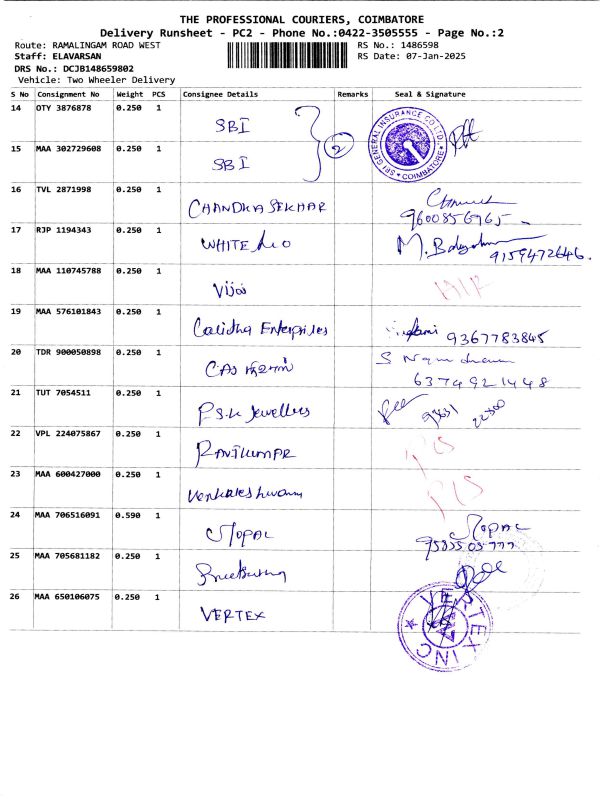 THE PROFESSIONAL COURIERS, COIMBATORE
Delivery Runsheet - PC2 - Phone No.:0422-3505555 - Page No.:2
Route: RAMALINGAM ROAD WEST
RS No.: 1486598
Staff: ELAVARSAN
RS Date: 07-Jan-2025
DRS No.: DCJB148659802
Vehicle: Two Wheeler Delivery
S No Consignment No Weight PCS Consignee Details Remarks Seal & Signature
14 OTY 3876878 0.250 1 SBI
SBI GENERAL INSURANCE CO.LTD. COIMBATORE
15 MAA 302729608 0.250 1 SBI 2
16 TVL 2871998 0.250 1 CHANDRASEKHAR
9600856965
17 RJP 1194343 0.250 1 WHITE Leo M.
9159472646.
18 MAA 110745788 0.250 1 Vijai
19 MAA 576101843 0.250 1 Lalitha Enterprises 9367783845
20 TDR 900050898 0.250 1 S
6374921448
21 TUT 7054511 0.250 1 P.S.K Jewellers
22 VPL 224075867 0.250 1 RAVIKUMAR
23 MAA 600427000 0.250 1 Venkateshwara
24 MAA 706516091 0.590 1 GOPAL GOPAL
25 MAA 705681182 0.250 1
26 MAA 650106075 0.250 1 VERTEX
VERTEX INC